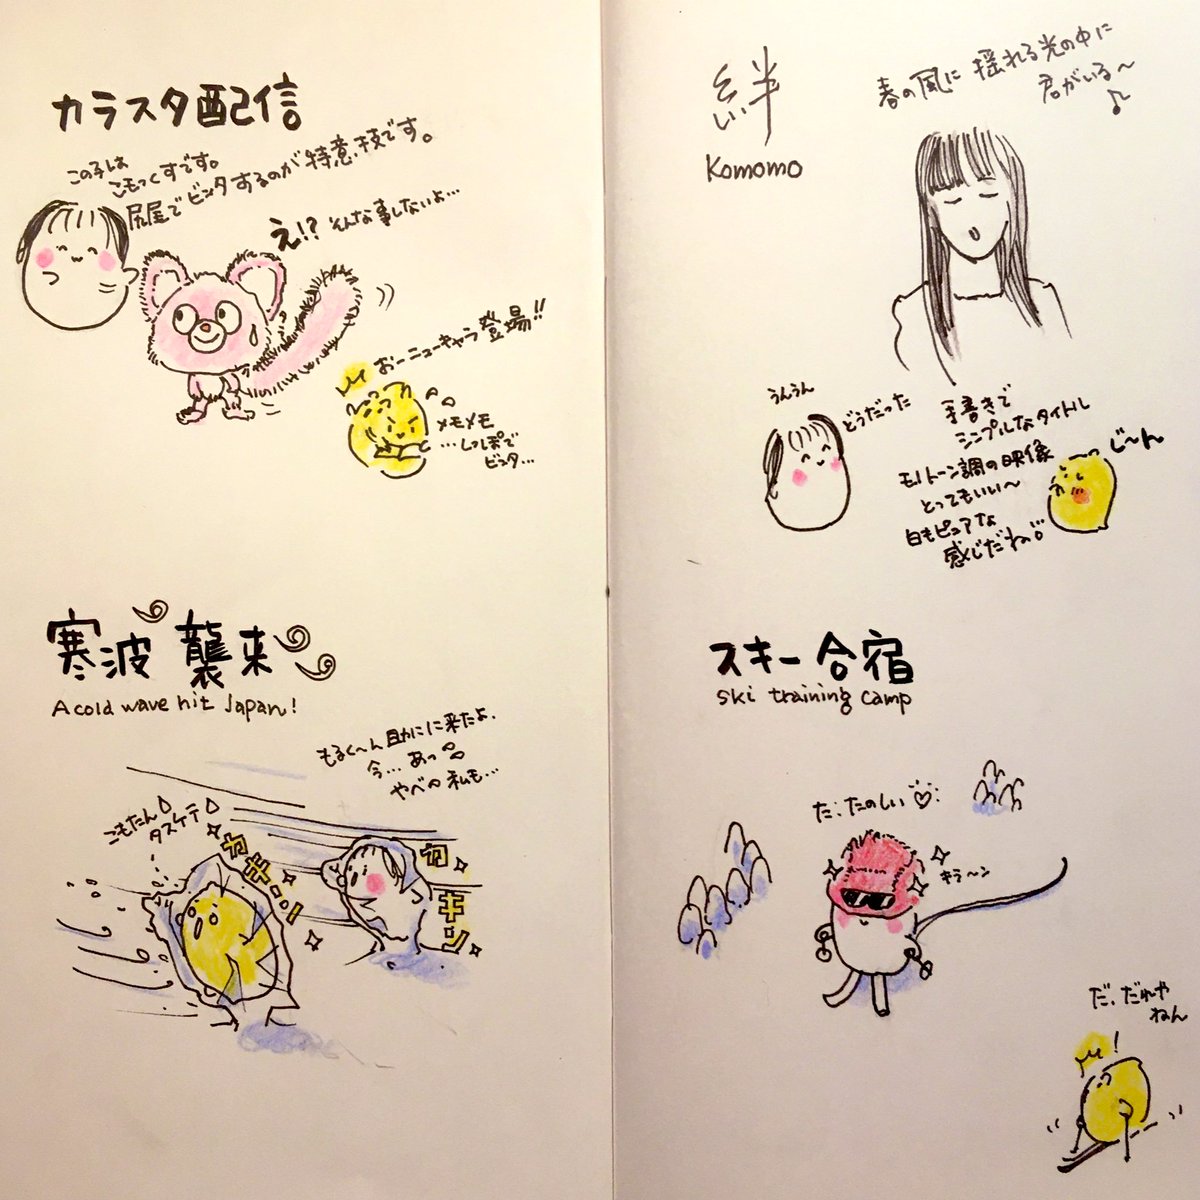 カラスタ配信
この子は
こもっくすです。
尻尾でビンタするのが特意技です。
え!? そんな事しないよ…
おーニューキャラ登場!!
メモメモ
…しっぽで
ビンタ…
寒波襲来
A cold wave hit Japan!
もるく〜ん助けに来たよ.
今… あっ
やべの私も…
こもたん
タスケテ
カキーン
カキン
絆
Komomo
春の風に揺れる光の中に
君がいる〜
うんうん
どうだった
手書きで
シンプルなタイトル
モノトーン調の映像
とってもいい〜
白もピュアな
感じだね
じ〜ん
スキー合宿
Ski training camp
だ、たのしい
キラ〜ン
だ、だれや
ねん